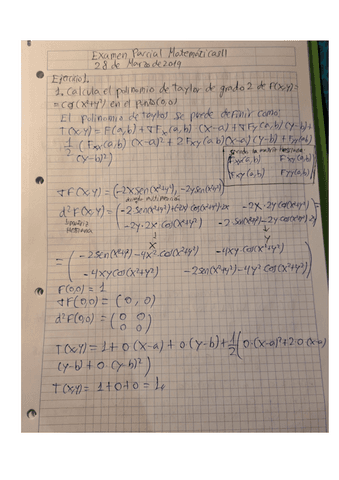 Examen Parcial Matemáticas III
28 de Marzo de 2019
Ejercicio 1.
1. Calcula el polinomio de Taylor de grado 2 de F(x,y)=
= cos(x²+y²) en el punto (0,0)
El Polinomio de Taylor se puede definir como:
T(x,y) = F(a,b) + ∇Fx(a,b) (x-a) + ∇Fy(a,b) (y-b) +
1/2 (Fxx(a,b) (x-a)² + 2Fxy(a,b)(x-a)(y-b) + Fyy(a,b)
(y-b)²)
Fxx(a,b) Fxy(a,b)
Fyx(a,b) Fyy(a,b)
∇F(x,y) = (-2x sen(x²+y²), -2y sen(x²+y²))
d²F(x,y) = (-2 sen(x²+y²) cos(x²+y²)·2x -2x·2y cos(x²+y²)
-2y·2x cos(x²+y²) -2 sen(x²+y²)-2y cos(x²+y²)·2y) =
x y
= (-2sen(x²+y²)-4x² cos(x²+y²) -4xy cos(x²+y²)
-4xy cos(x²+y²) -2sen(x²+y²)-4y² cos(x²+y²))
F(0,0) = 1
∇F(0,0) = (0, 0)
d²F(0,0) = (0 0
0 0)
T(x,y) = 1 + 0(x-a) + 0(y-b) + 1/2(0·(x-a)²+2·0(x-a)
(y-b) + 0·(y-b)²)
T(x,y) = 1+0+0 = 1